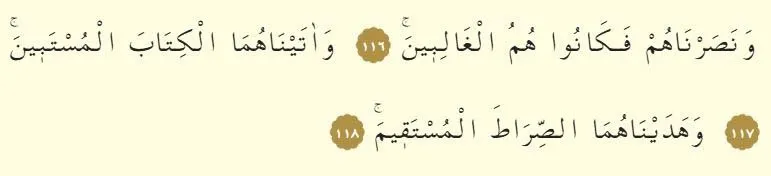 وَنَصَرْنَاهُمْ فَكَانُوا هُمُ الْغَالِب۪ينَۚ ﴿١١٦﴾ وَاٰتَيْنَاهُمَا الْكِتَابَ الْمُسْتَب۪ينَۚ
﴿١١٧﴾ وَهَدَيْنَاهُمَا الصِّرَاطَ الْمُسْتَق۪يمَۚ ﴿١١٨﴾